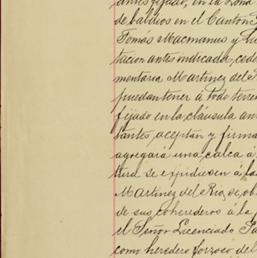 antes fijado, en la zona
de baldios en el Canton
Tomás Macmanus y
tacion antes indicador, cede
mentaria Martinez del
puedan tener á todo terren
fijado en la cláusula an
tantes, aceptan y firma
agregará una calca á
tud se expidiesen á fa
Martinez del Rio, ó, ob
de sus coherederos á la
el Señor Licenciado
como heredero forzoso del